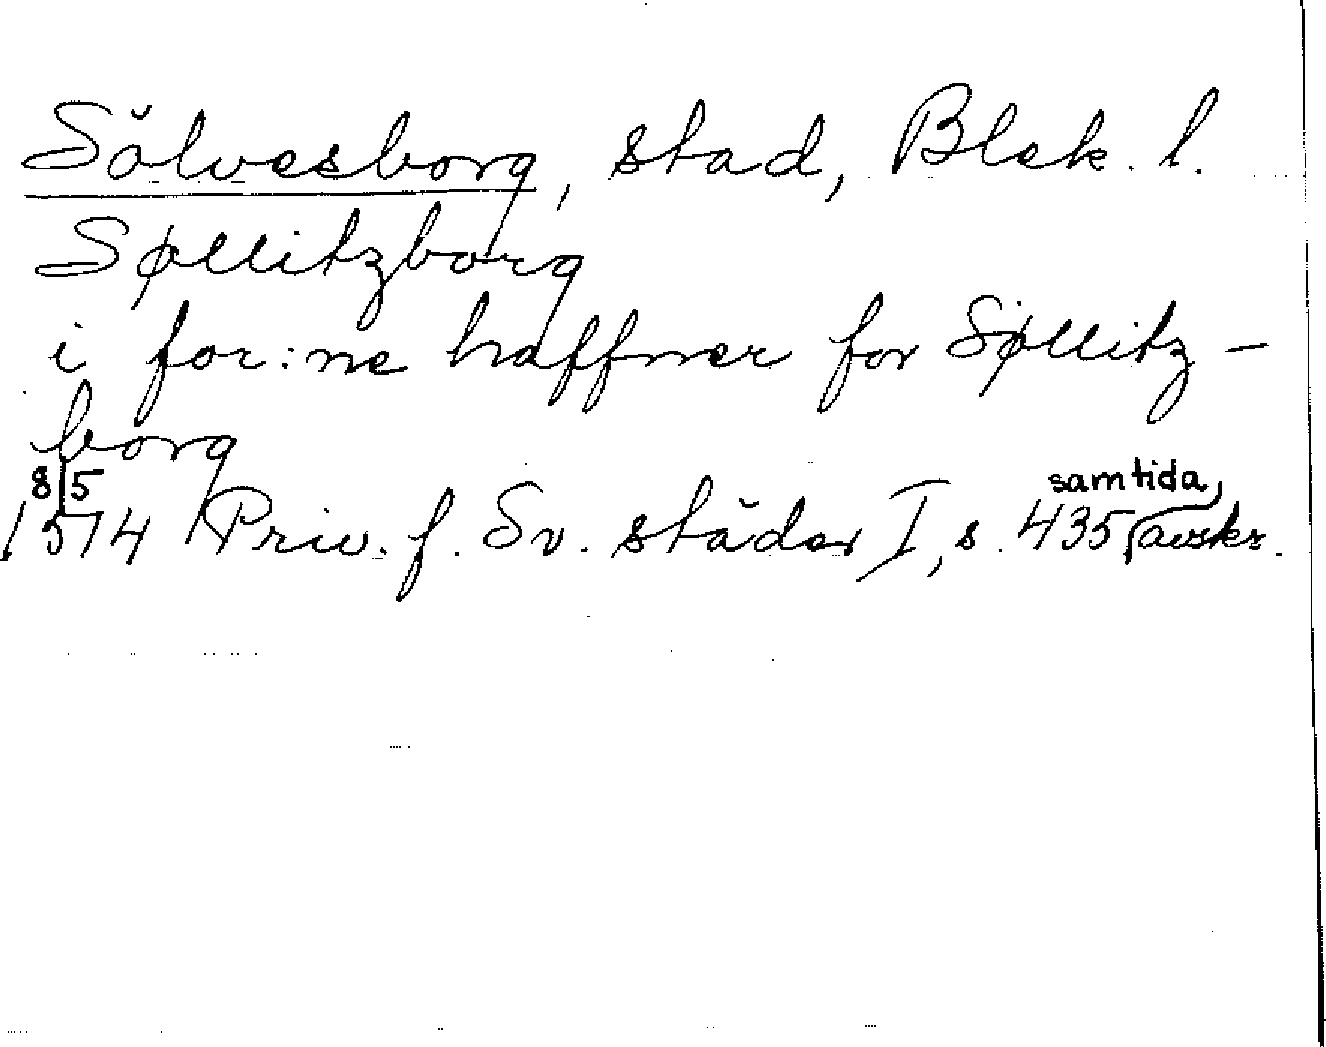 Sölvesborg, stad, Blek. l.
Søllitzborg
i for:ne haffner for Søllitz-
borg
8/5 samtida
1514 Priv. f. Sv. städer I, s. 435 (avskr.